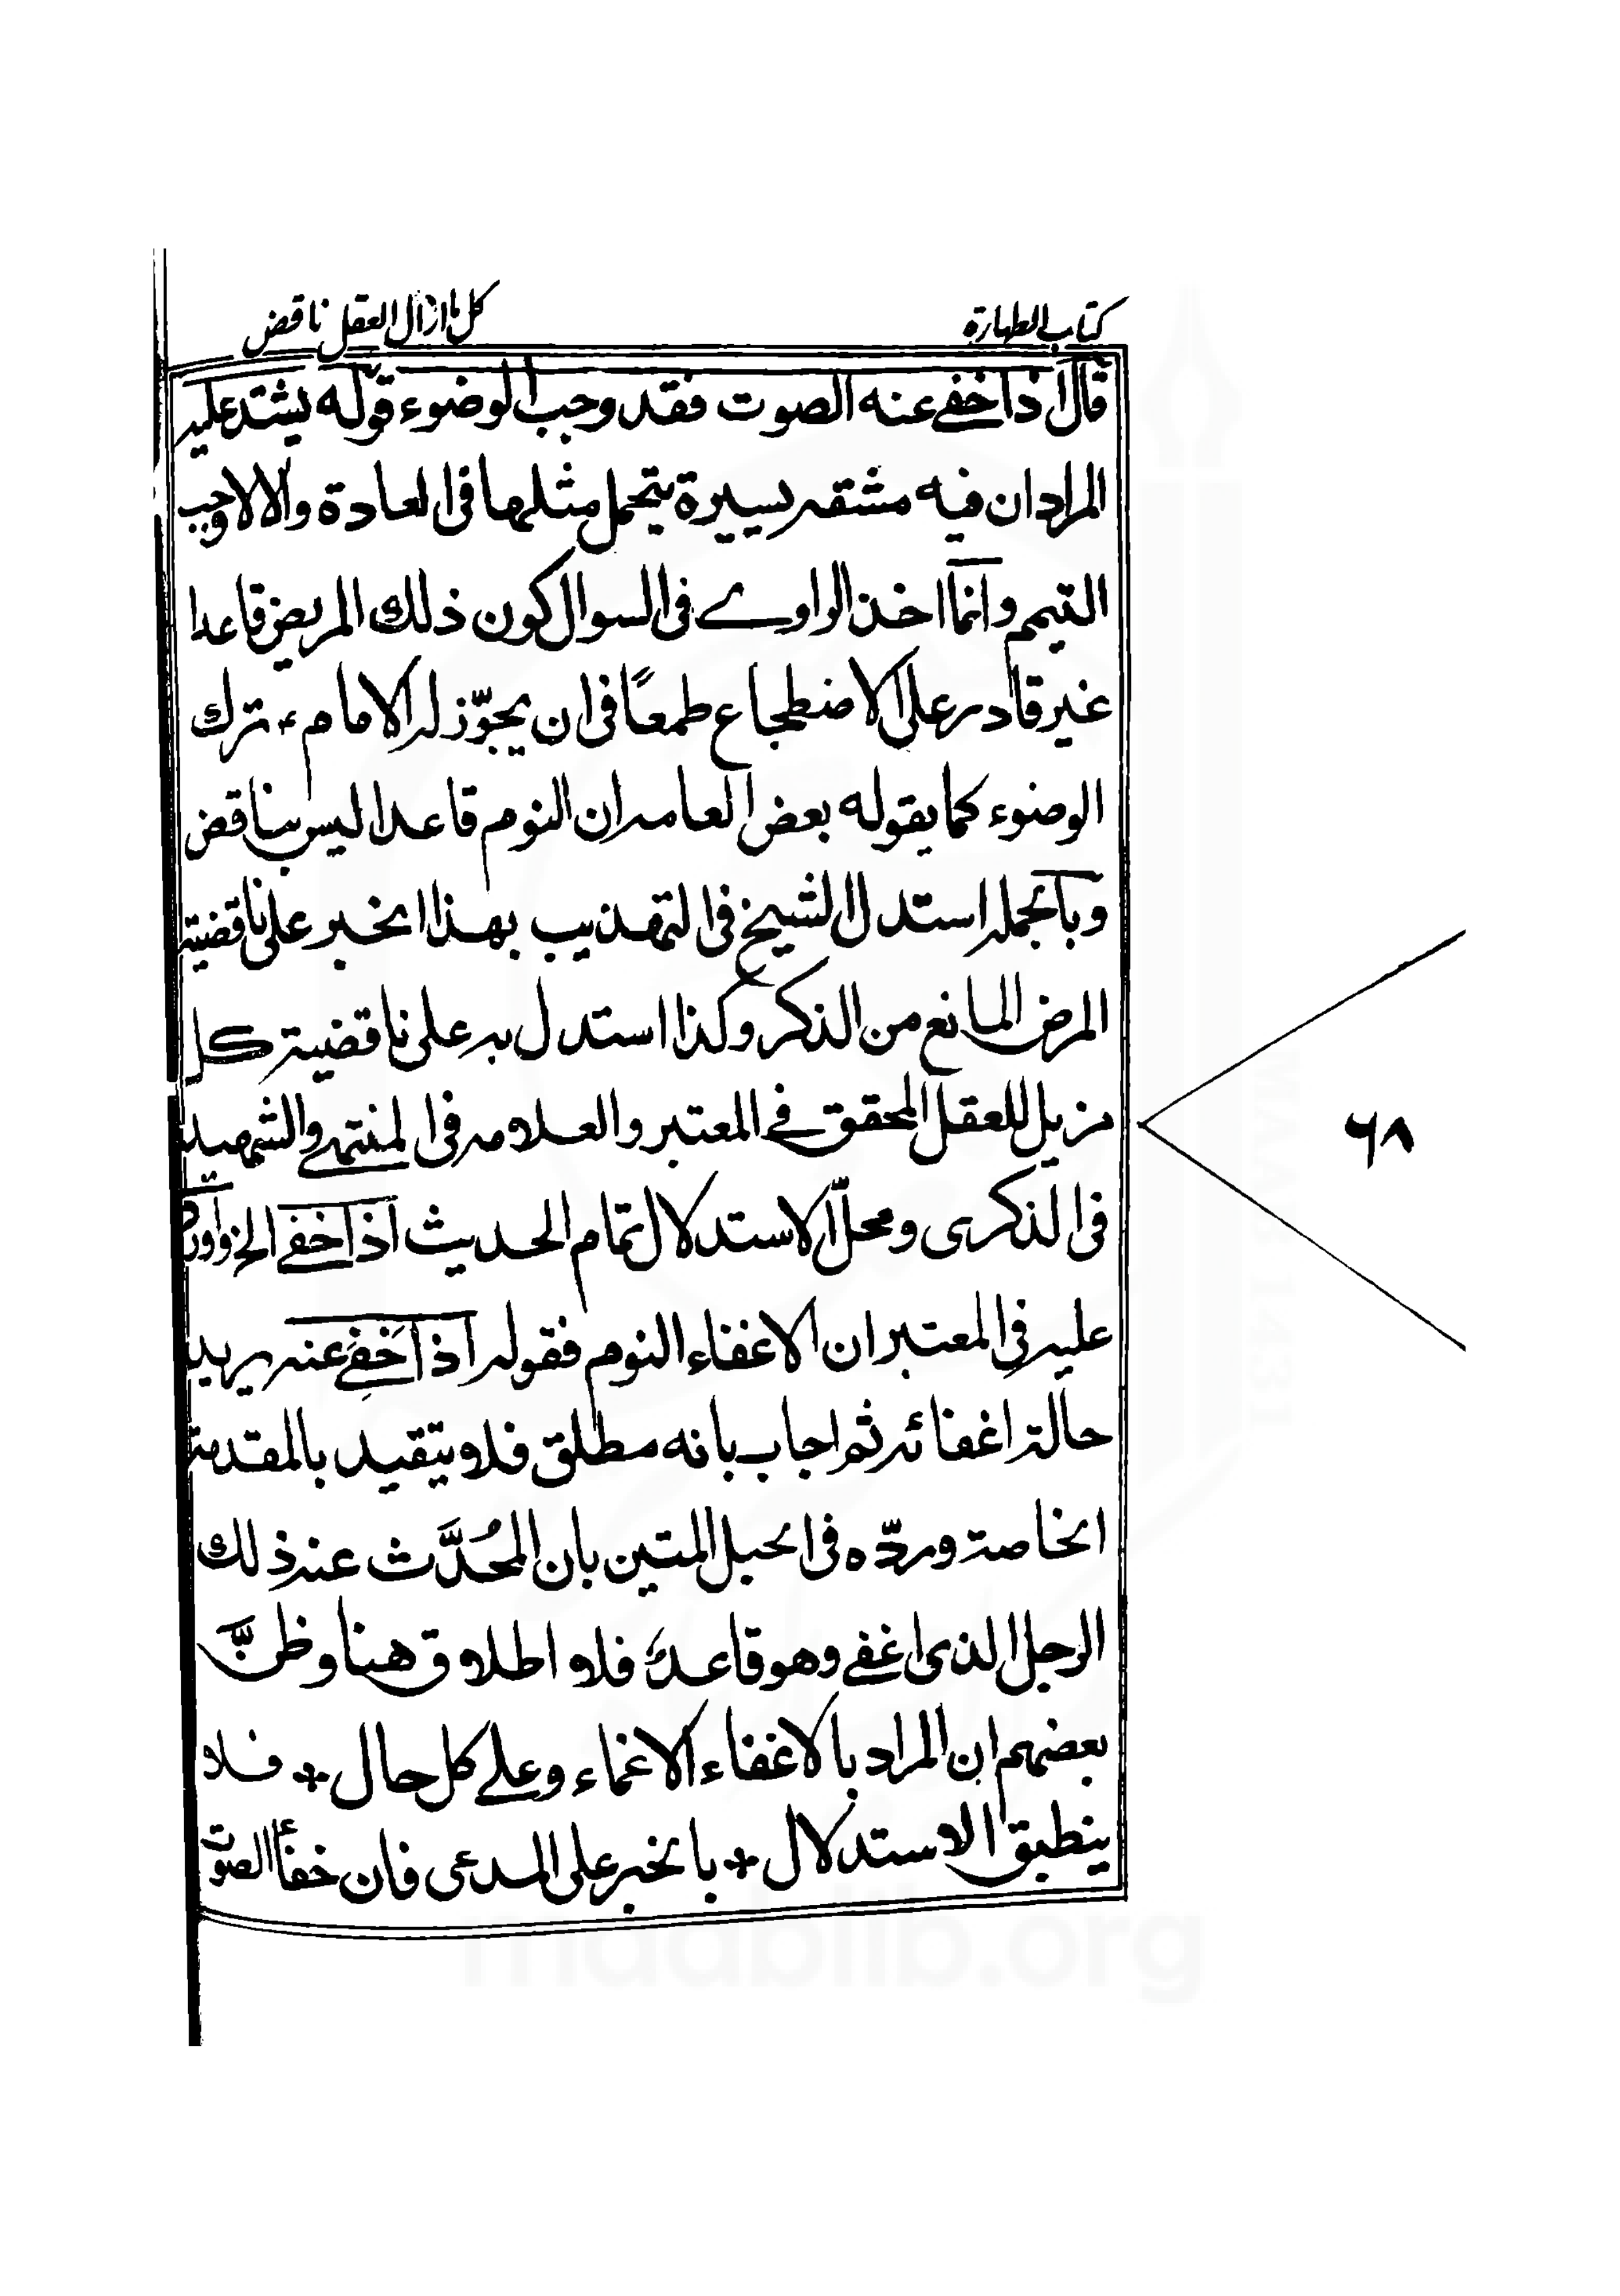 كتاب الطهارة
كل ما ازال العقل ناقض
قال اذا خفے عنه الصوت فقد وجب الوضوء قوله يشتد عليه
المراد ان فيه مشقة يسيرة يتحمل مثلها فى العادة والا لاوجب
التيمم وانما اخذ الراوے فى السوال كون ذلك المريض قاعدا
غير قادر على الاضطجاع طمعًا فى ان يجوّز له الامام ء ترك
الوضوء كما يقوله بعض العامة ان النوم قاعدا ليس بناقض
وبالجملة استدل الشيخ فى التهذيب بهذا الخبر على ناقضية
المرض المانع من الذكر وكذا استدل به على ناقضية كل
مزيل للعقل المحقق فے المعتبر والعلامة فى المنتهے والشهيد
فى الذكرى ومحلّ الاستدلال تمام الحديث اذا خفے الخ واورد
عليه فى المعتبر ان الاغفاء النوم فقوله اذا خَفِے عنه يريد
حالة اغفائه ثم اجاب بانه مطلق فلا يتقيد بالمقدمة
الخاصة وردّه فى الحبل المتين بان المُحَدَّث عنه ذلك
الرجل الذى اغفے وهو قاعد فلا اطلاق هنا وظنَّ
بعضهم ان المراد بالاغفاء الاغماء وعلے كل حال * فلا
ينطبق الاستدلال * بالخبر على المدعى فان خفأ الصوت
۶۸
maablib.org